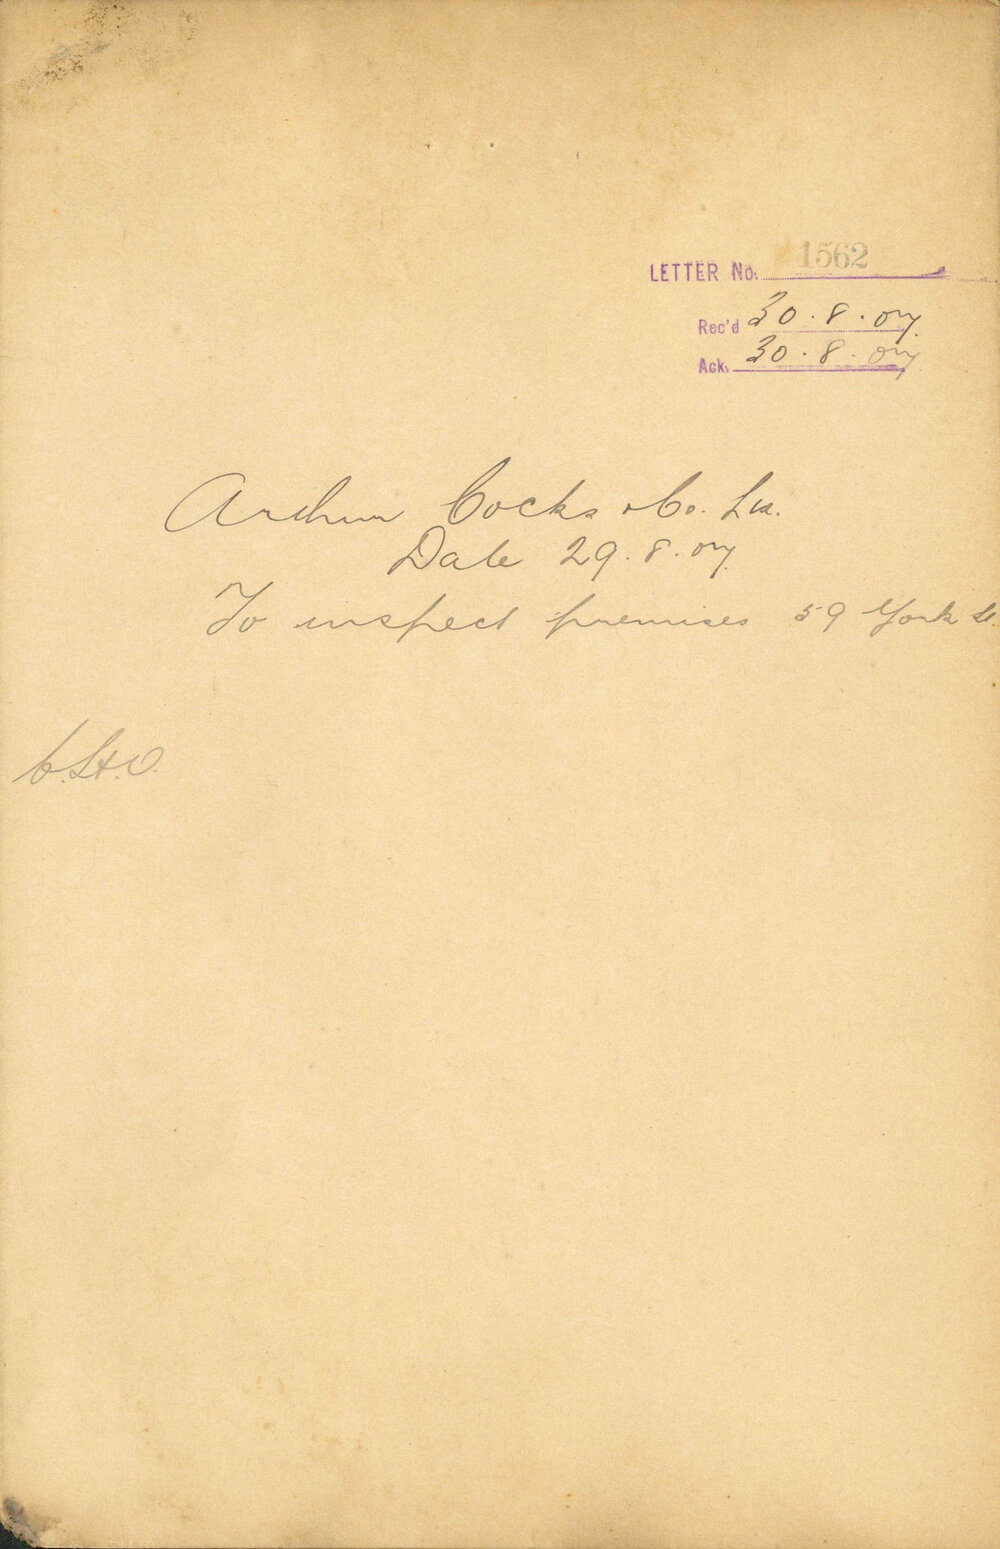 LETTER No. 1562
Rec'd 30.8.07.
Ack. 30.8.07
Arthur Cocks & Co. Ltd.
Date 29.8.07.
To inspect premises 59 York St.
C.H.O.